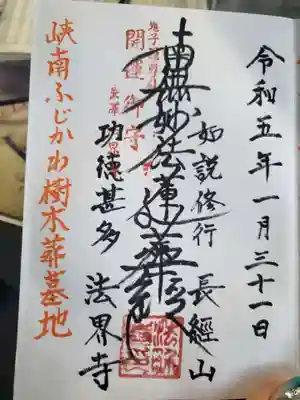 令和五年一月三十一日
長經山
如説修行
南無妙法蓮華経
開運御守
功徳甚多
法界寺
峡南ふじかわ樹木葬墓地